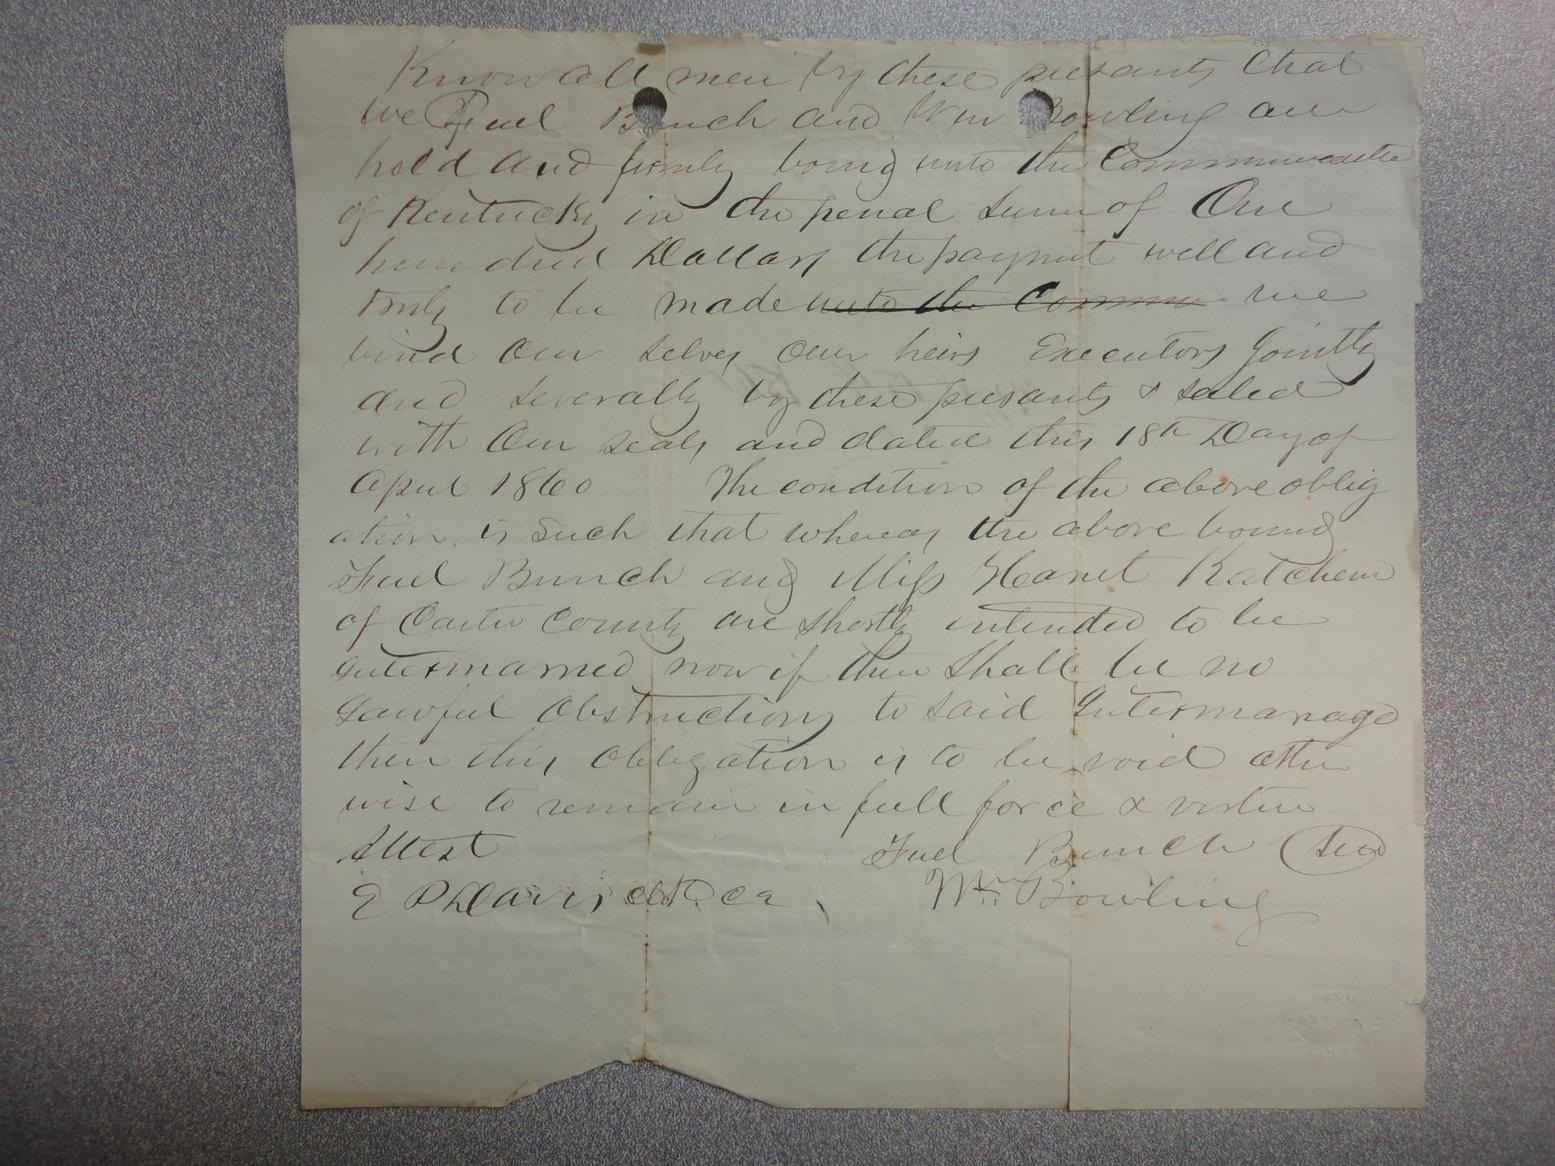 Know all men by these presants that
we Fuel Bunch and Wm Bowling are
held and firmly boung unto the Commonwealth
of Kentucky in the penal sum of One
hundred Dollars the paymnt well and
truly to be made unto the Commn we
bind our selves our heirs Executors Jointly
and severally by these presants & sealed
with our seals and dated this 18th Day of
April 1860 The condition of the above oblig
ation is such that whereas the above boung
Fuel Bunch and Miss Haret Katchem
of Carter County are shortly intended to be
intermarried now if their shall be no
Lawful obstructions to said intermarrage
then this obligation is to be void other
wise to remain in full force & virtue
Attest Fuel Bunch
E P Davis clk Wm Bowling